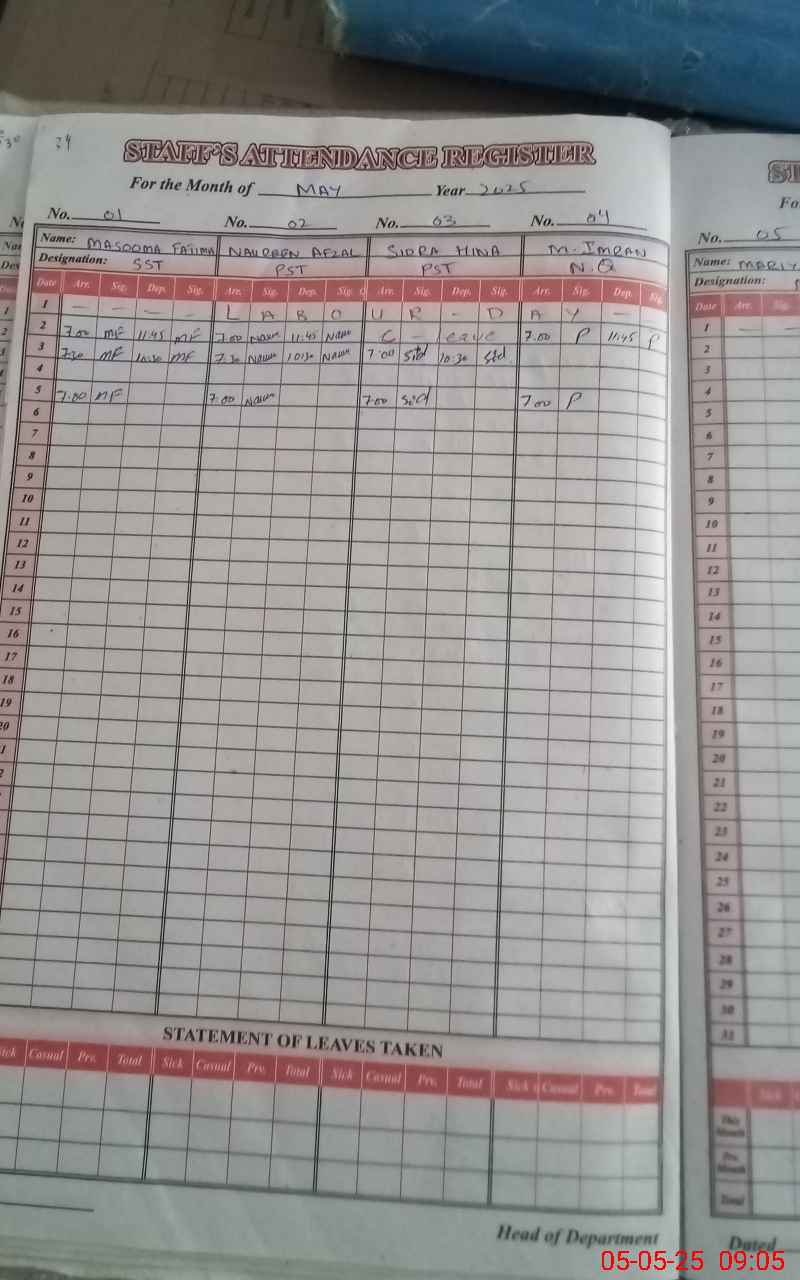 34
STAFF'S ATTENDANCE REGISTER
For the Month of MAY Year 2025
No. 01 No. 02 No. 03 No. 04
Name: MASOOMA FATIMA NAUREEN AFZAL SIDRA HINA M. IMRAN
Designation: SST PST PST N.Q
Date Arr. Sig. Dep. Sig. Arr. Sig. Dep. Sig. Arr. Sig. Dep. Sig. Arr. Sig. Dep. Sig.
1 — — — — L A B O U R - D A Y —
2 7.00 MF 11:45 MF 7.00 11:45 C - leave 7.00 P 11:45 P
3 7:30 MF 10:30 MF 7.30 10:30 7:00 Sid 10:30 Sid
4
5 7:00 MF 7:00 7:00 Sid 7:00 P
6
7
8
9
10
11
12
13
14
15
16
17
18
19
20
STATEMENT OF LEAVES TAKEN
Sick Casual Prv. Total Sick Casual Prv. Total Sick Casual Prv. Total Sick Casual Prv. Total
Head of Department
No. 05
Name: MARIY
Designation:
Date Arr. Sig.
1 — —
2
3
4
5
6
7
8
9
10
11
12
13
14
15
16
17
18
19
20
21
22
23
24
25
26
27
28
29
30
31
Sick
This Month
Prv. Month
Total
Dated
05-05-25 09:05